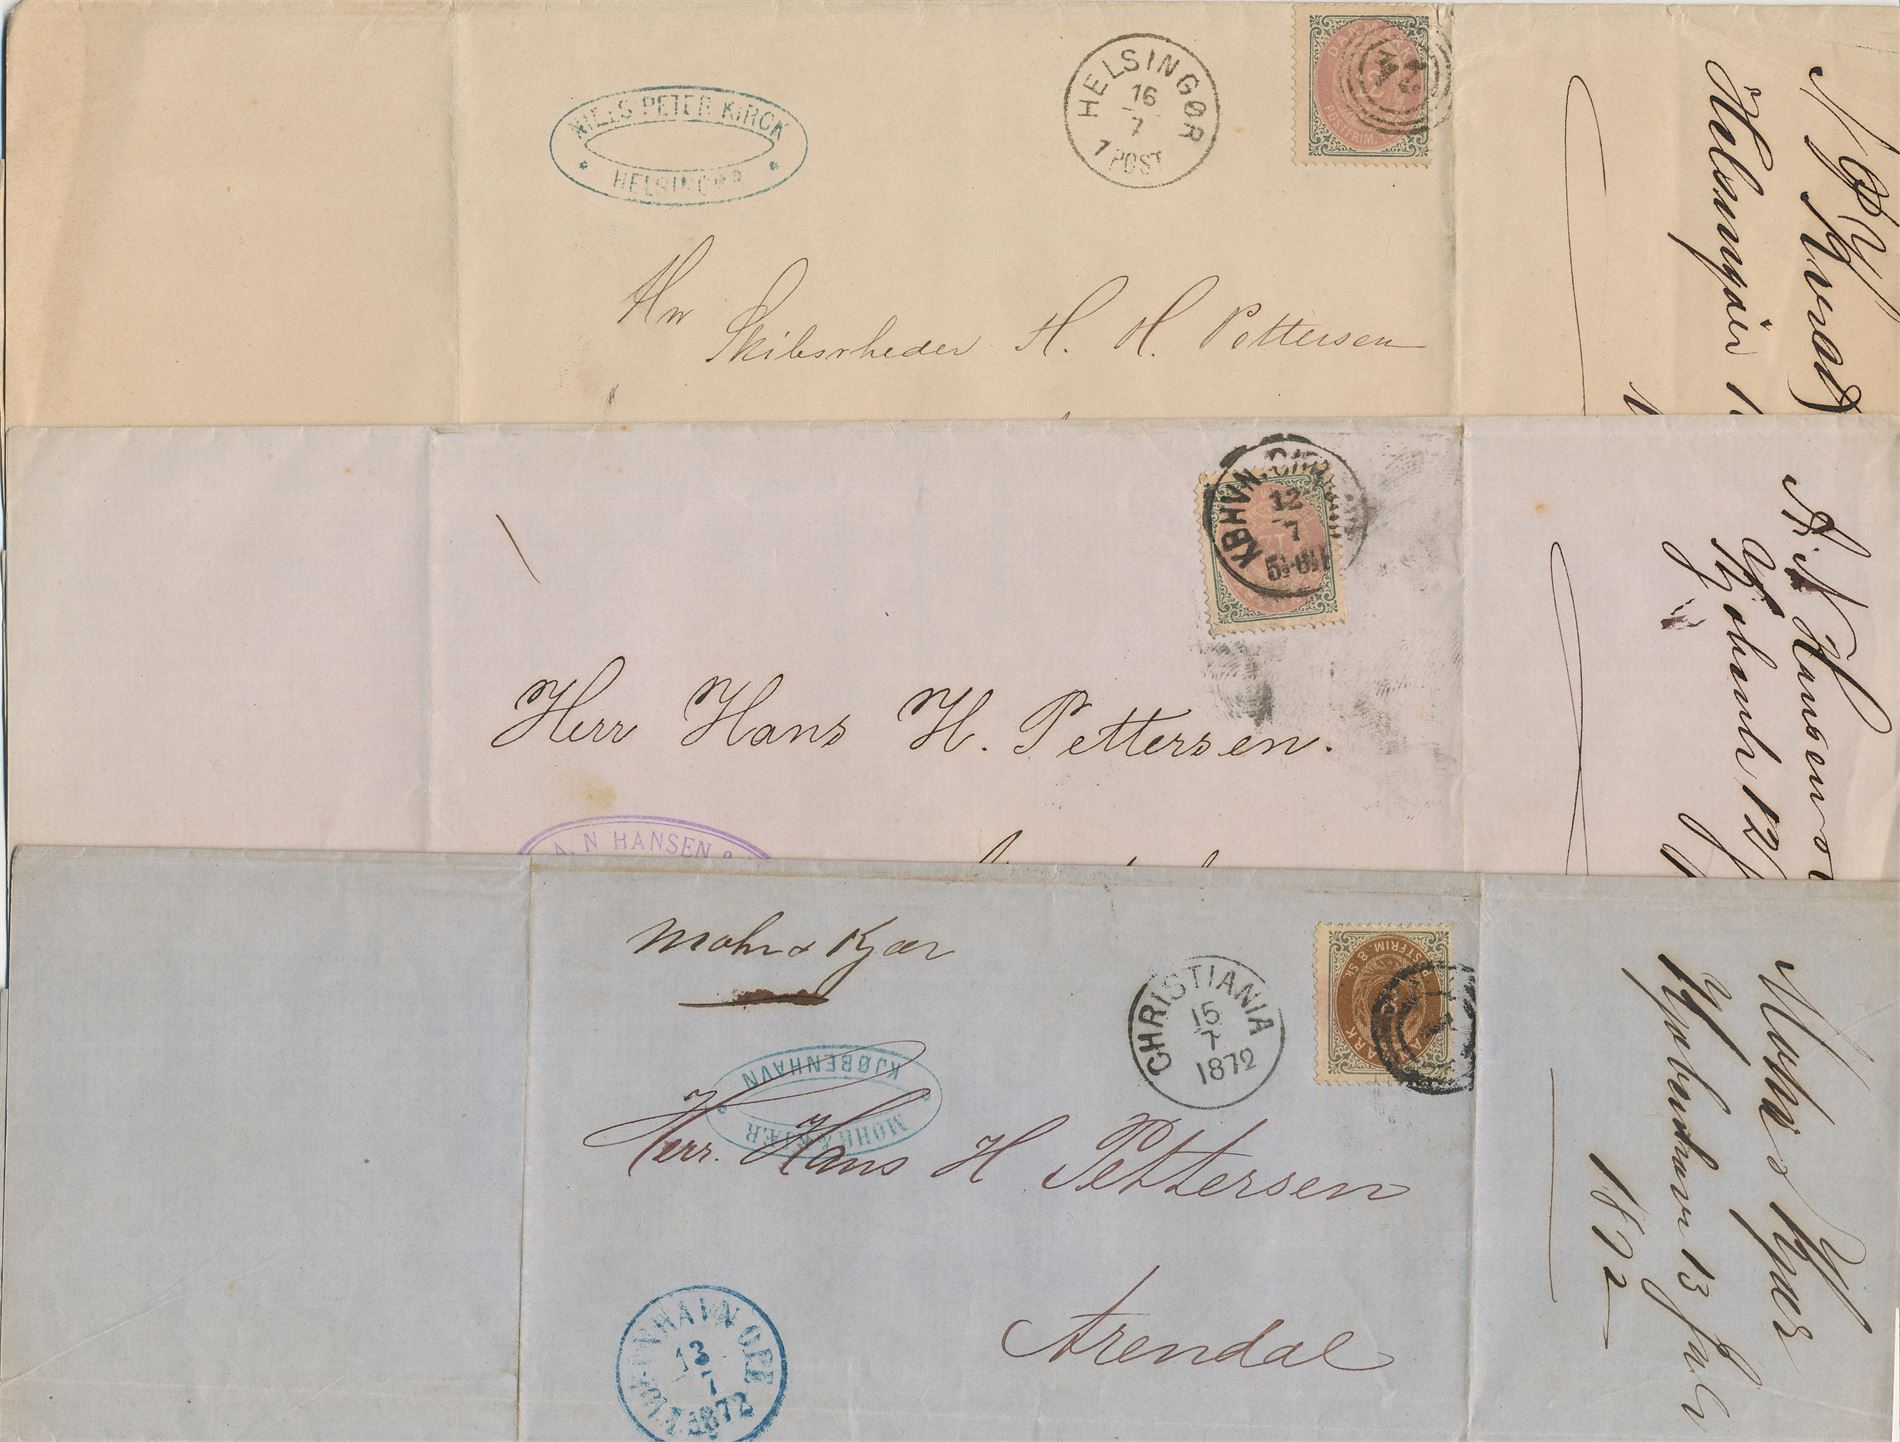 NIELS PETER KIRCK
HELSINGØR
HELSINGØR
16
7
1 POST
DANMARK
POSTFRIM.
Hr
Skibsrheder H. H. Pettersen
Helsingør
KBHVN.
12
7
Herr Hans H. Pettersen.
A. N. HANSEN &
A. N. Hansen
Kjøbenh 12/
Mohr & Kjær
CHRISTIANIA
15
7
1872
POSTFRIM. 8 SK.
MOHR & KJÆR
KJØBENHAVN
Herr. Hans H Pettersen
Arendal
KJØBENHAVN
13
7
1872
Mohr & Kjær
Kjøbenhavn 13 Juli
1872